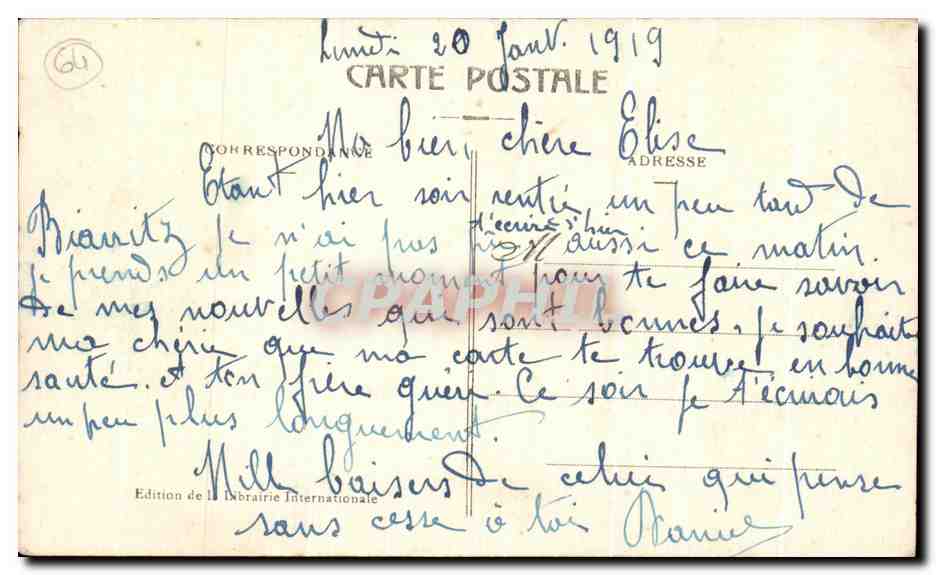 64
Lundi 20 Janv. 1919
CARTE POSTALE
Ma bien chère Elise
CORRESPONDANCE
ADRESSE
Etant hier soir rentré un peu tard de
t'écrire hier
Biarritz je n'ai pas pu aussi ce matin
je prends un petit moment pour te faire savoir
CPAPHIL
de mes nouvelles qui sont bonnes, je souhaite
ma chérie que ma carte te trouve en bonne
santé. et ton frère guéri. Ce soir je t'écrirais
un peu plus longuement.
Mille baisers de celui qui pense
Edition de la Librairie Internationale
sans cesse à toi Daniel